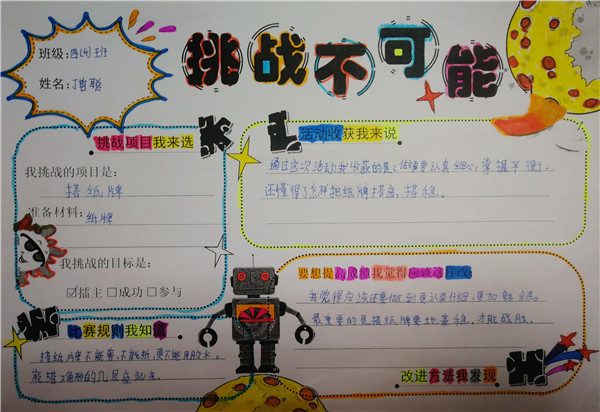 挑战不可能
班级:四(4)班
姓名:丁哲聪
挑战项目我来选
我挑战的项目是:
搭纸牌
准备材料:纸牌
我挑战的目标是:
☑擂主□成功□参与
活动收获我来说
通过这次活动我收获的是:做事要认真细心,掌握平衡。
还懂得了怎样把纸牌搭高,搭稳。
比赛规则我知道
搭纸牌不能弯、不能折,更不能用胶水。
要想提高成绩我觉得应该这样改:
我觉得应该还要做到更认真仔细,更加
最重要的是搭纸牌要地基稳,才能战胜。
改进方法我发现